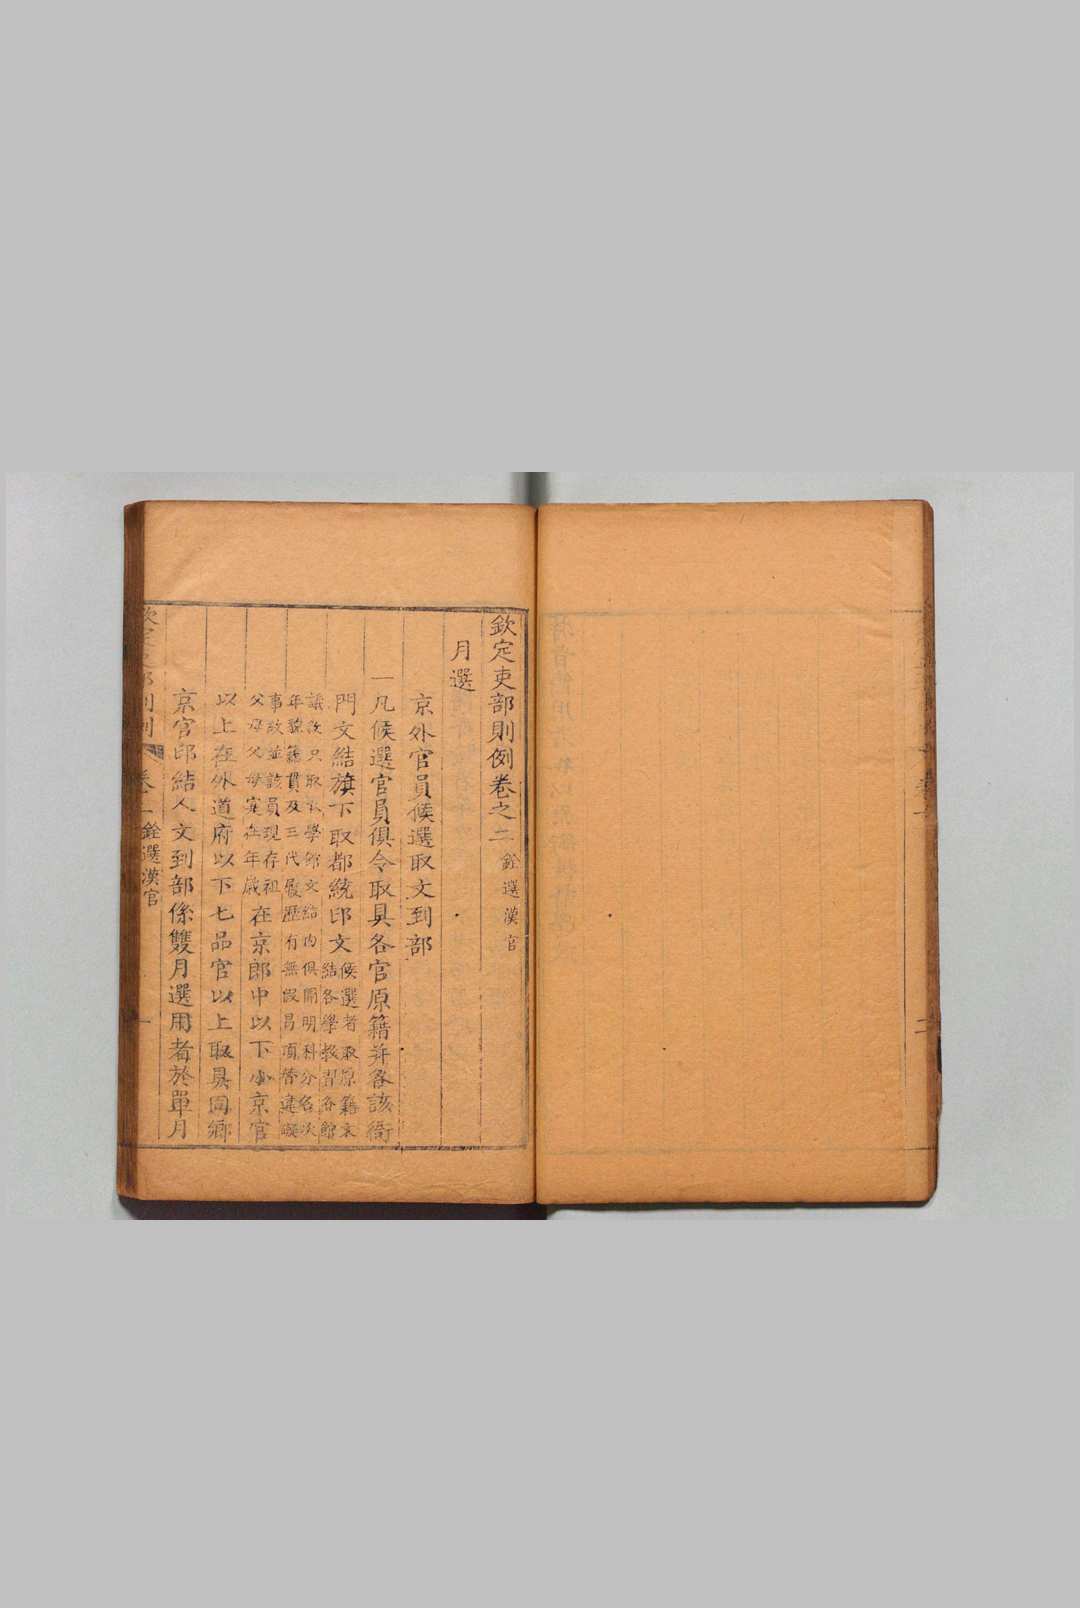 欽定吏部則例卷之二 銓選漢官
月選
京外官員候選取文到部
一凡候選官員俱令取具各官原籍并各該衙
門文結旗下取都統印文候選者取原籍文
結各學教習各館
議敘只取本學印文結內俱開明科分名次
年貌籍貫及三代履歷有無假冒頂替違礙
事故並該員現存祖
父母父母寔在年歲在京郎中以下小京官
以上在外道府以下七品官以上取具同鄉
京官印結人文到部係雙月選用者於單月
銓選漢官